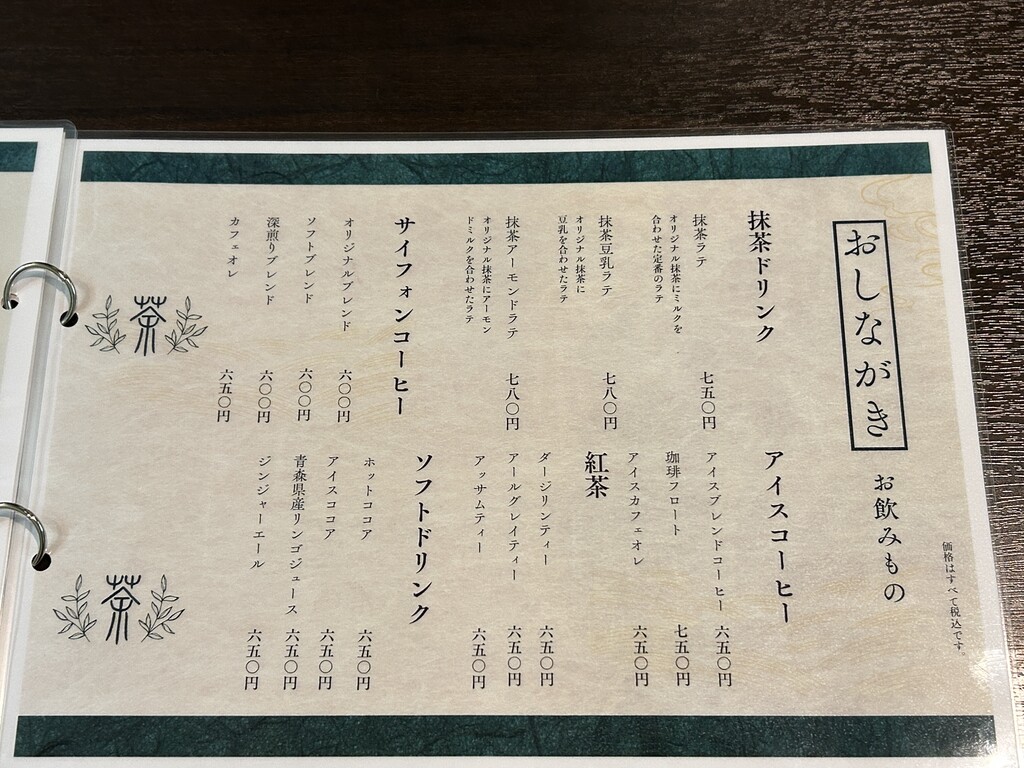 おしながき
お飲みもの
価格はすべて税込です。
抹茶ドリンク
抹茶ラテ
七五〇円
オリジナル抹茶にミルクを
合わせた定番のラテ
抹茶豆乳ラテ
七八〇円
オリジナル抹茶に
豆乳を合わせたラテ
抹茶アーモンドラテ
七八〇円
オリジナル抹茶にアーモン
ドミルクを合わせたラテ
サイフォンコーヒー
オリジナルブレンド
六〇〇円
ソフトブレンド
六〇〇円
深煎りブレンド
六〇〇円
カフェオレ
六五〇円
アイスコーヒー
アイスブレンドコーヒー
六五〇円
珈琲フロート
七五〇円
アイスカフェオレ
六五〇円
紅茶
ダージリンティー
六五〇円
アールグレイティー
六五〇円
アッサムティー
六五〇円
ソフトドリンク
ホットココア
六五〇円
アイスココア
六五〇円
青森県産リンゴジュース
六五〇円
ジンジャーエール
六五〇円
茶
茶